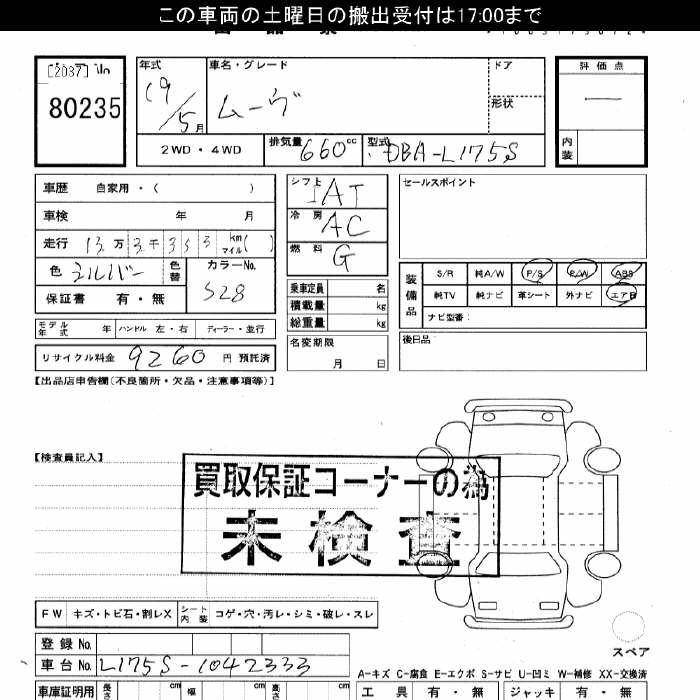 この車両の土曜日の搬出受付は17:00まで
[2037]
80235
年式
19/5月
車名・グレード
ムーヴ
ドア
形状
評価点
内装
2WD・4WD
排気量 660cc
型式 DBA-L175S
車歴 自家用・( )
車検 年 月
走行 13万3千353 km マイル( )
色 シルバー
色替
カラーNo.
S28
保証書 有・無
シフト IAT
冷房 AC
燃料 G
乗車定員 名
積載量 kg
総重量 kg
セールスポイント
装備品
S/R 純A/W P/S P/W ABS
純TV 純ナビ 革シート 外ナビ エアB
ナビ型番:
モデル年式 年 ハンドル 左・右 ディーラー・並行
リサイクル料金 9260 円 預託済
名変期限
月 日
後日品
【出品店申告欄(不良箇所・欠品・注意事項等)】
【検査員記入】
買取保証コーナーの為
未検査
FW キズ・トビ石・割レX
シート内装 コゲ・穴・汚レ・シミ・破レ・スレ
スペア
登録No.
車台No. L175S-1042333
A-キズ C-腐食 E-エクボ S-サビ U-凹ミ W-補修 XX-交換済
車庫証明用 長さ cm 幅 cm 高さ cm
工具 有・無 ジャッキ 有・無